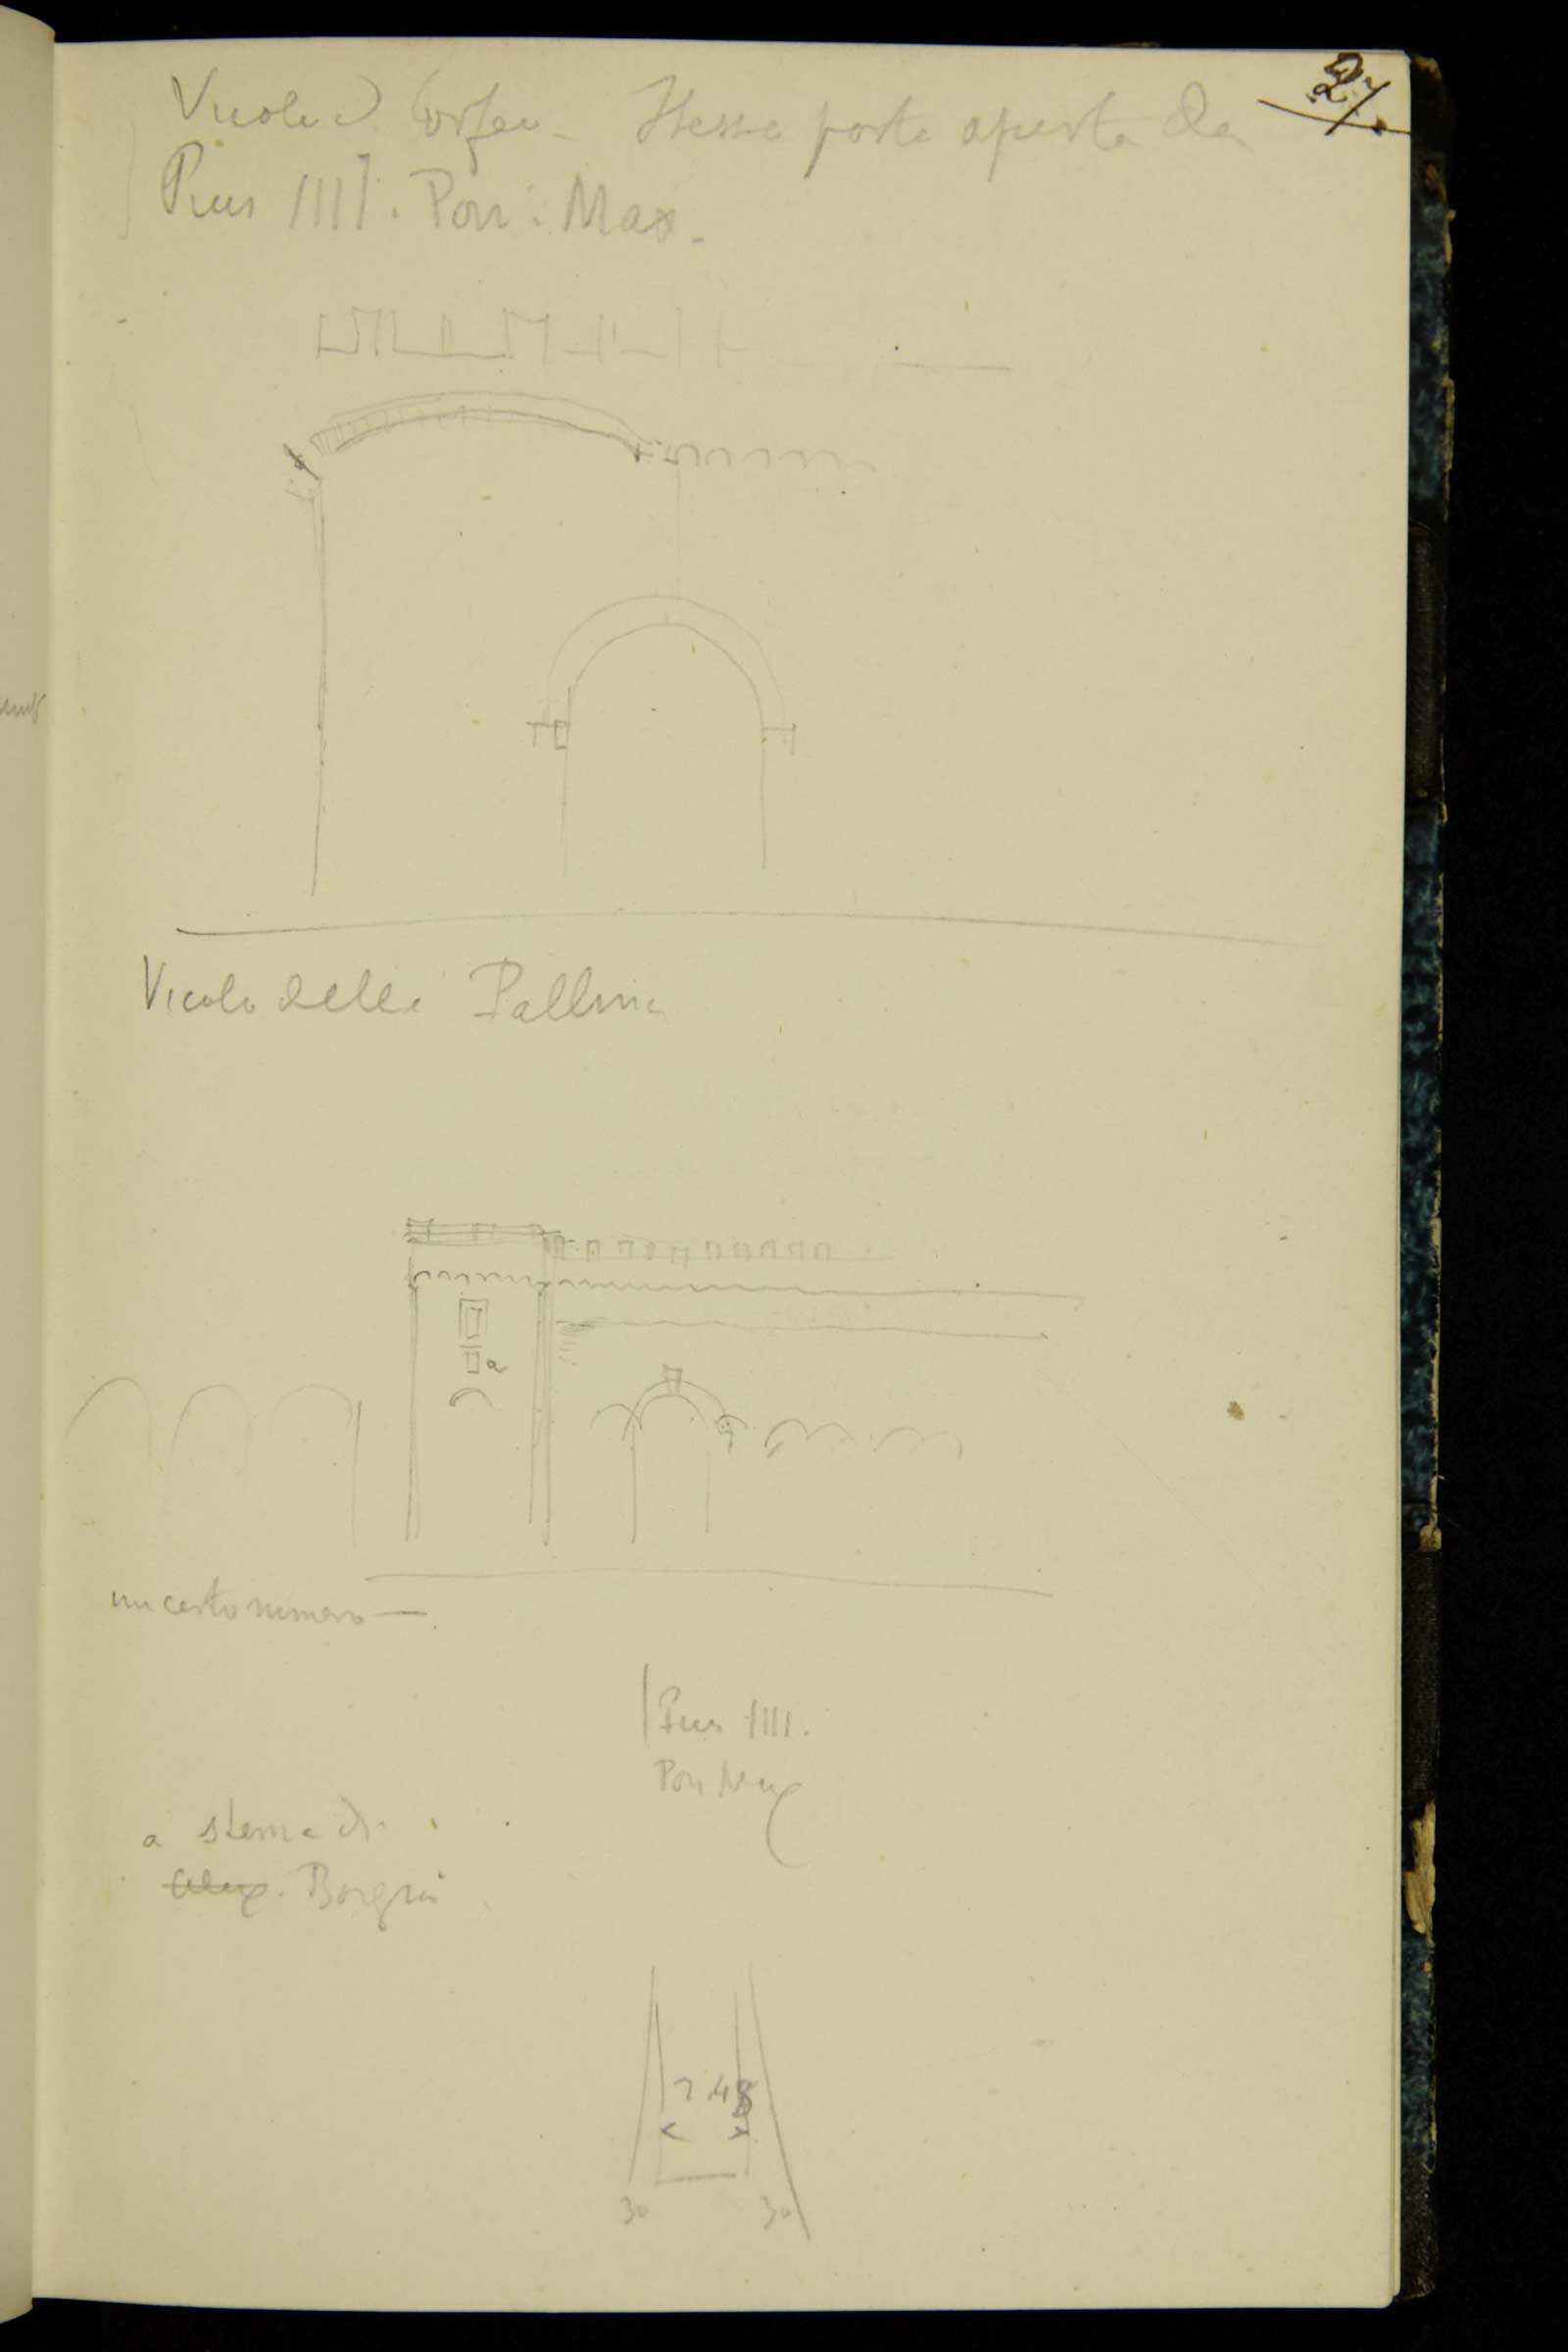 27
Vicolo d. Corfeo - Stessa porta aperta da
Pius IIII. Pon. Max.
Vicolo delle Palline
a
un certo numero —
Pius IIII.
Pon Max
a stema di
Alex. Borgia
7.48
30 30